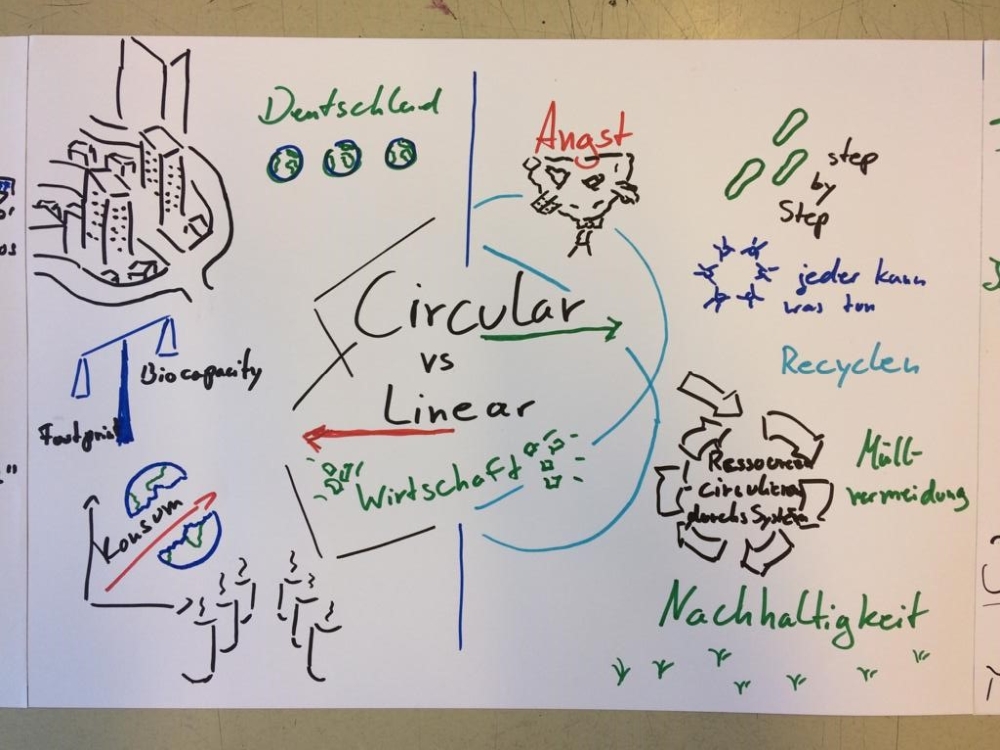 Deutschland
Biocapacity
Footprint
Konsum
Circular
vs
Linear
Wirtschaft
Angst
step
by
Step
jeder kann
was tun
Recyclen
Ressourcen
circulieren
durchs System
Müll-
vermeidung
Nachhaltigkeit